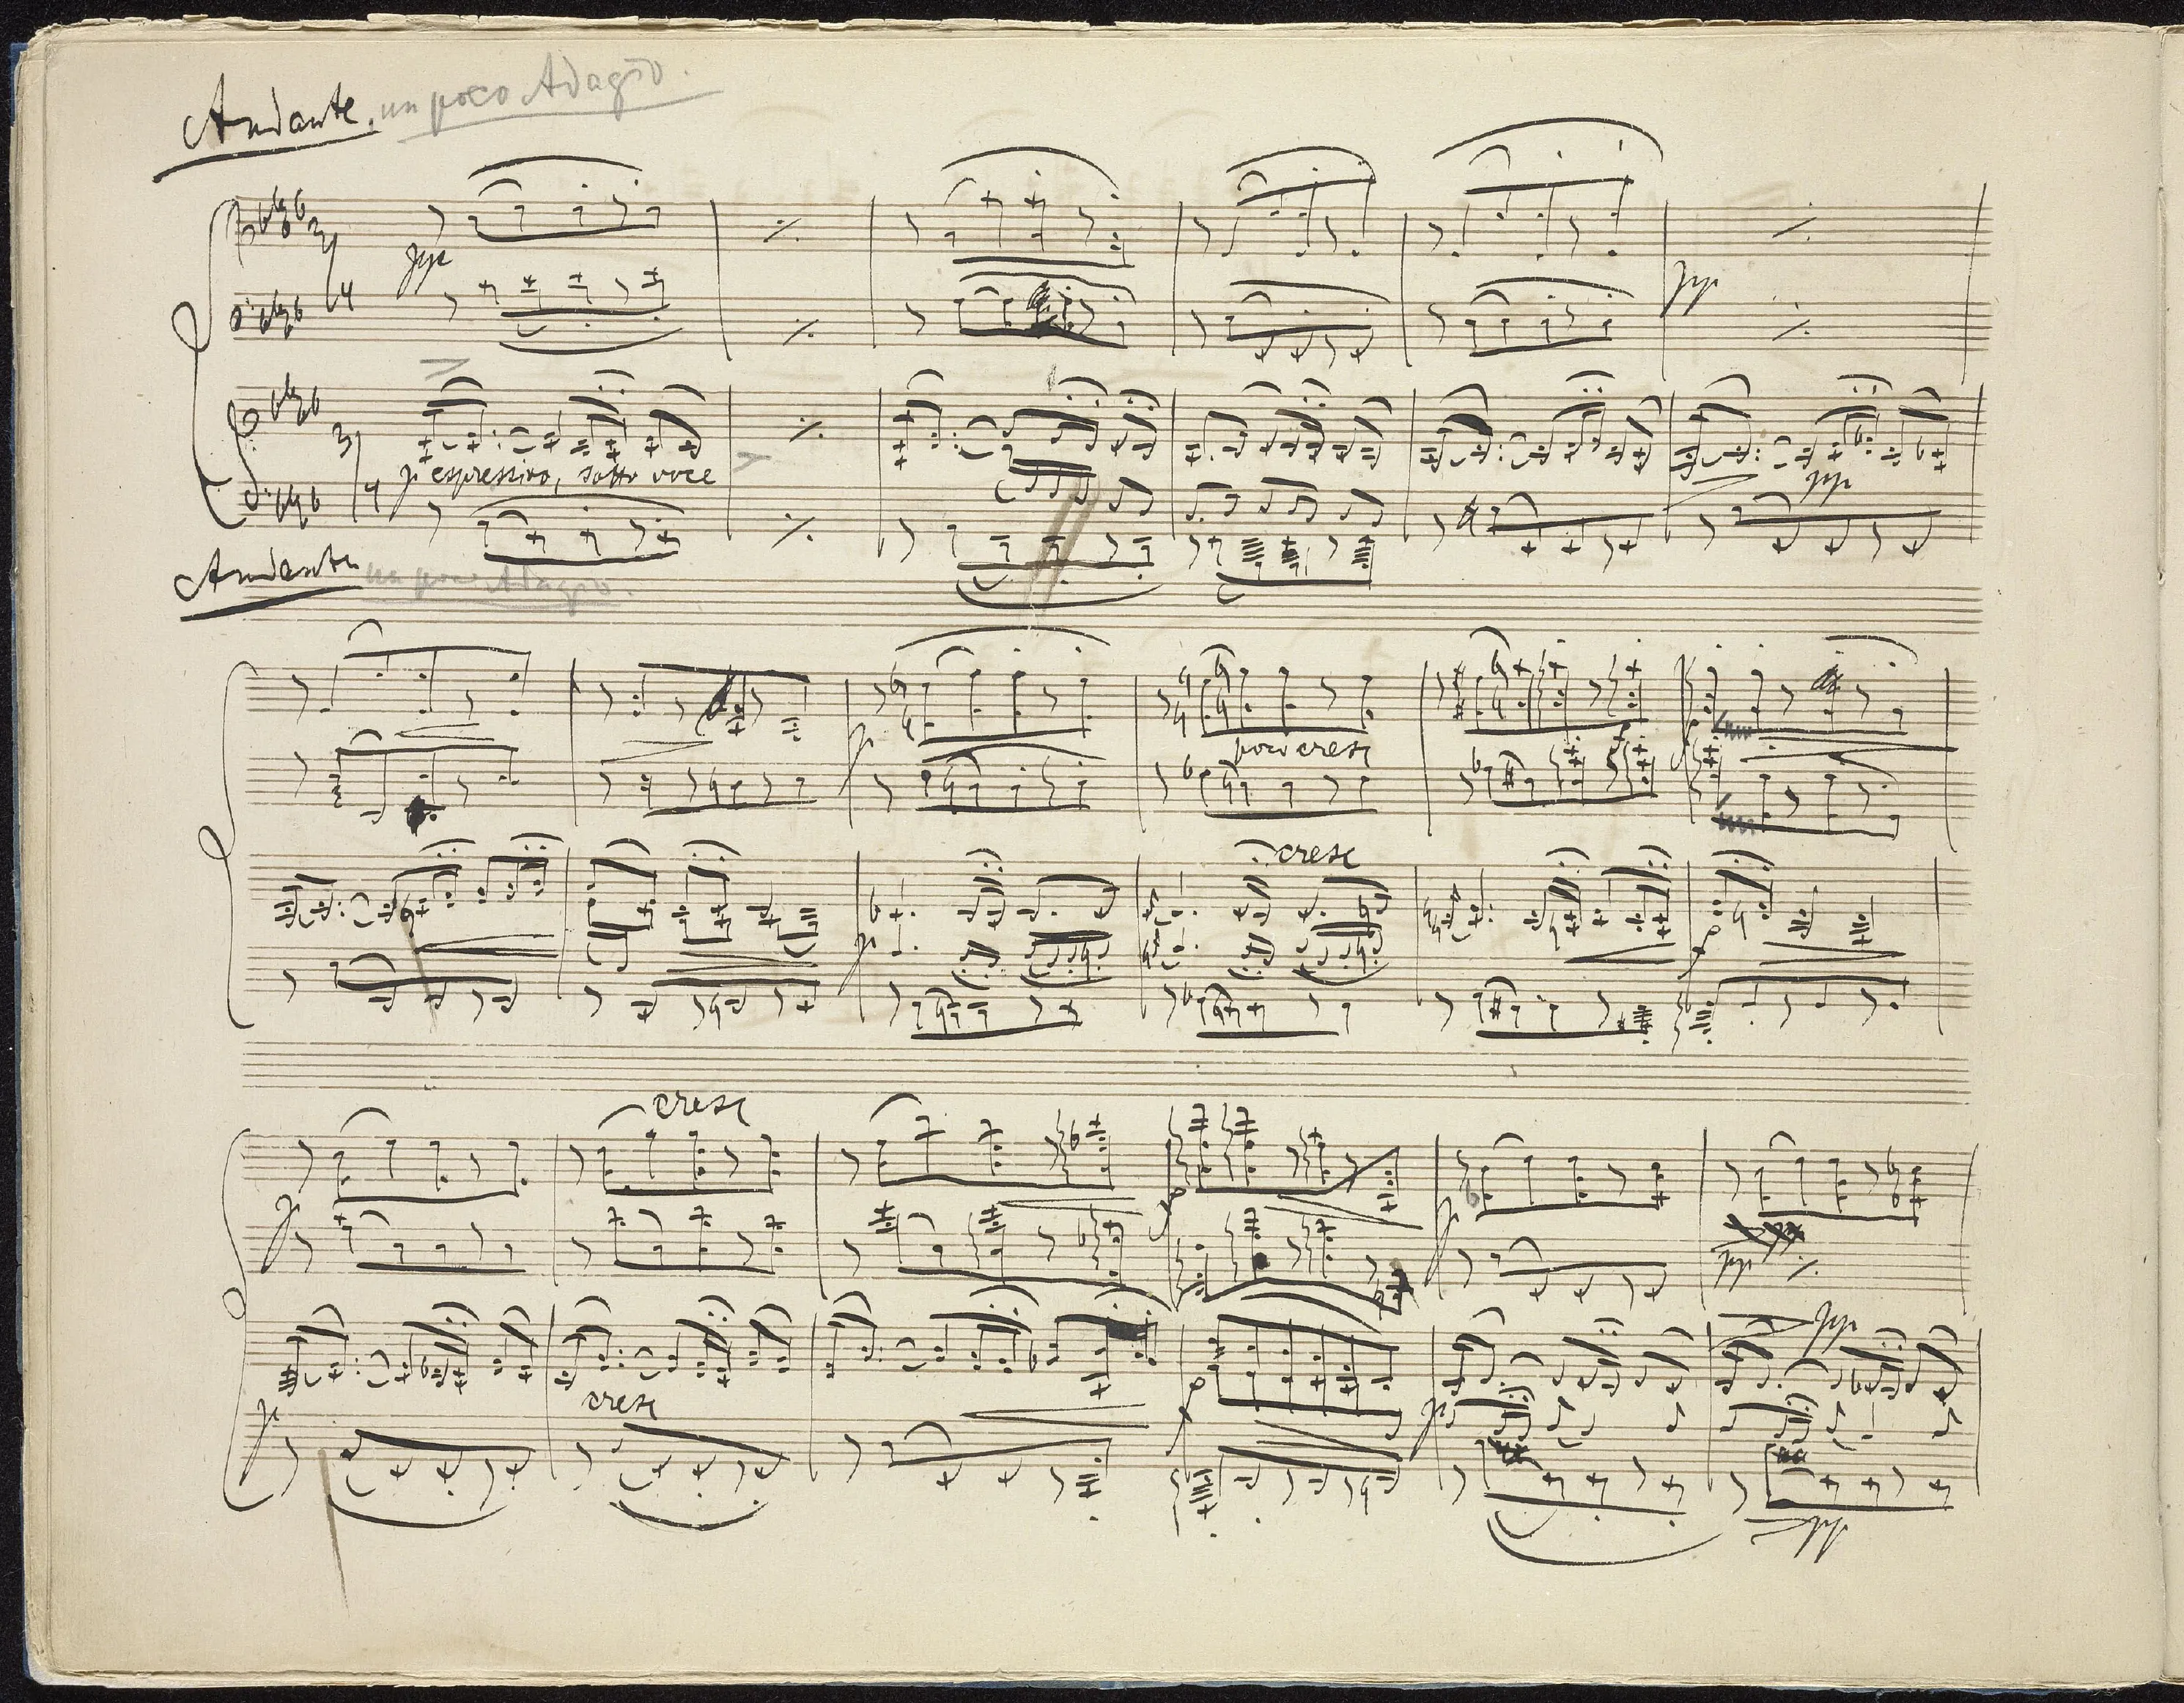 Andante. un poco Adagio.
pp
pp
p espressivo, sotto voce
pp
Andante un poco Adagio.
p
poco cresc
f
cresc
p
f
cresc
p
f
p
pp
pp
cresc
p
f
p
pp